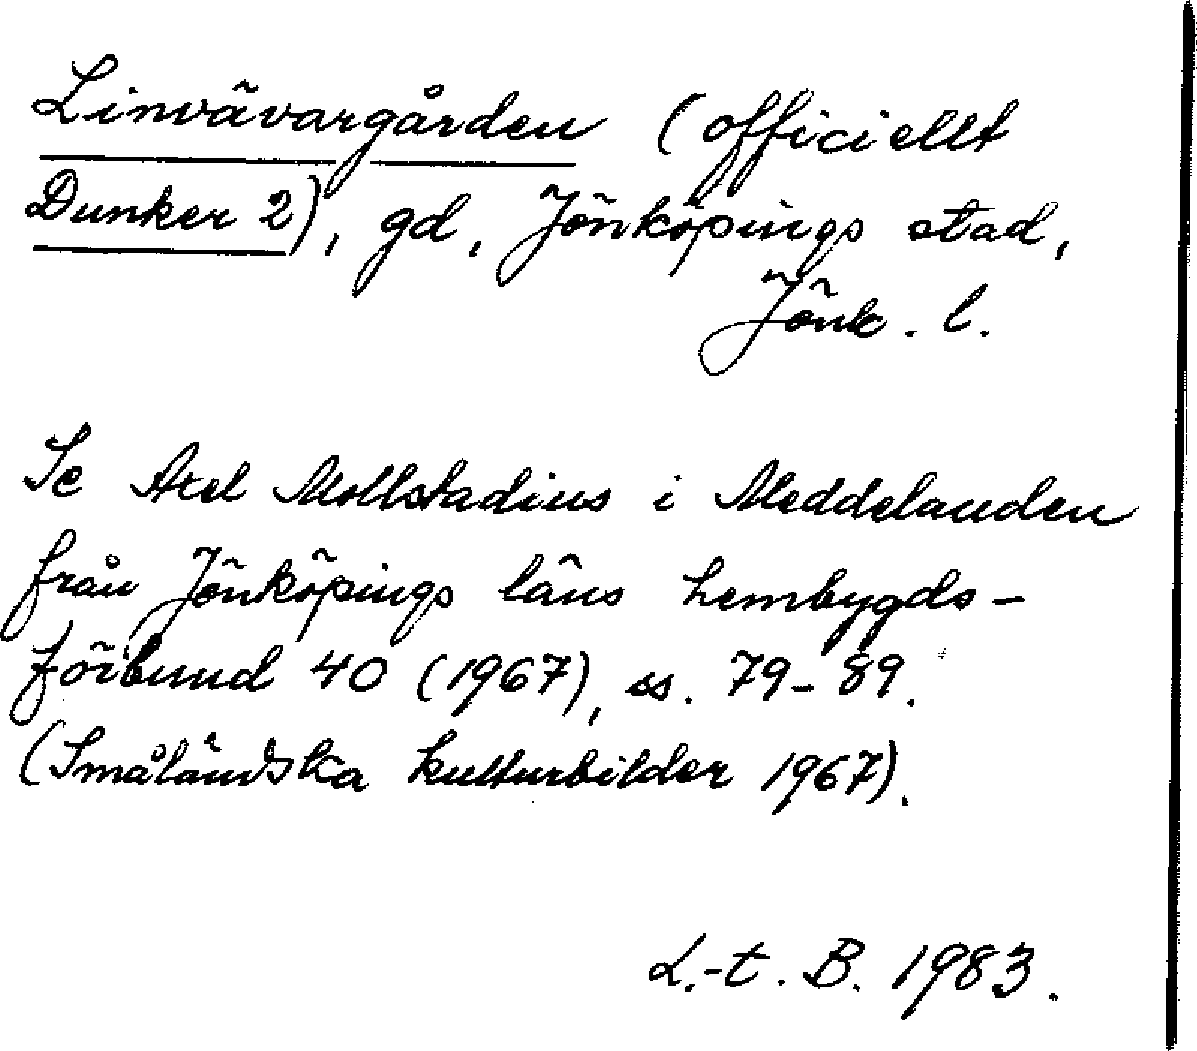 Linvävargården (officiellt
Dunker 2), gd, Jönköpings stad,
Jönk. l.
Se Axel Mollstadius i Meddelanden
från Jönköpings läns hembygds-
förbund 40 (1967), ss. 79-89.
(Småländska kulturbilder 1967).
L.-t. B. 1983.